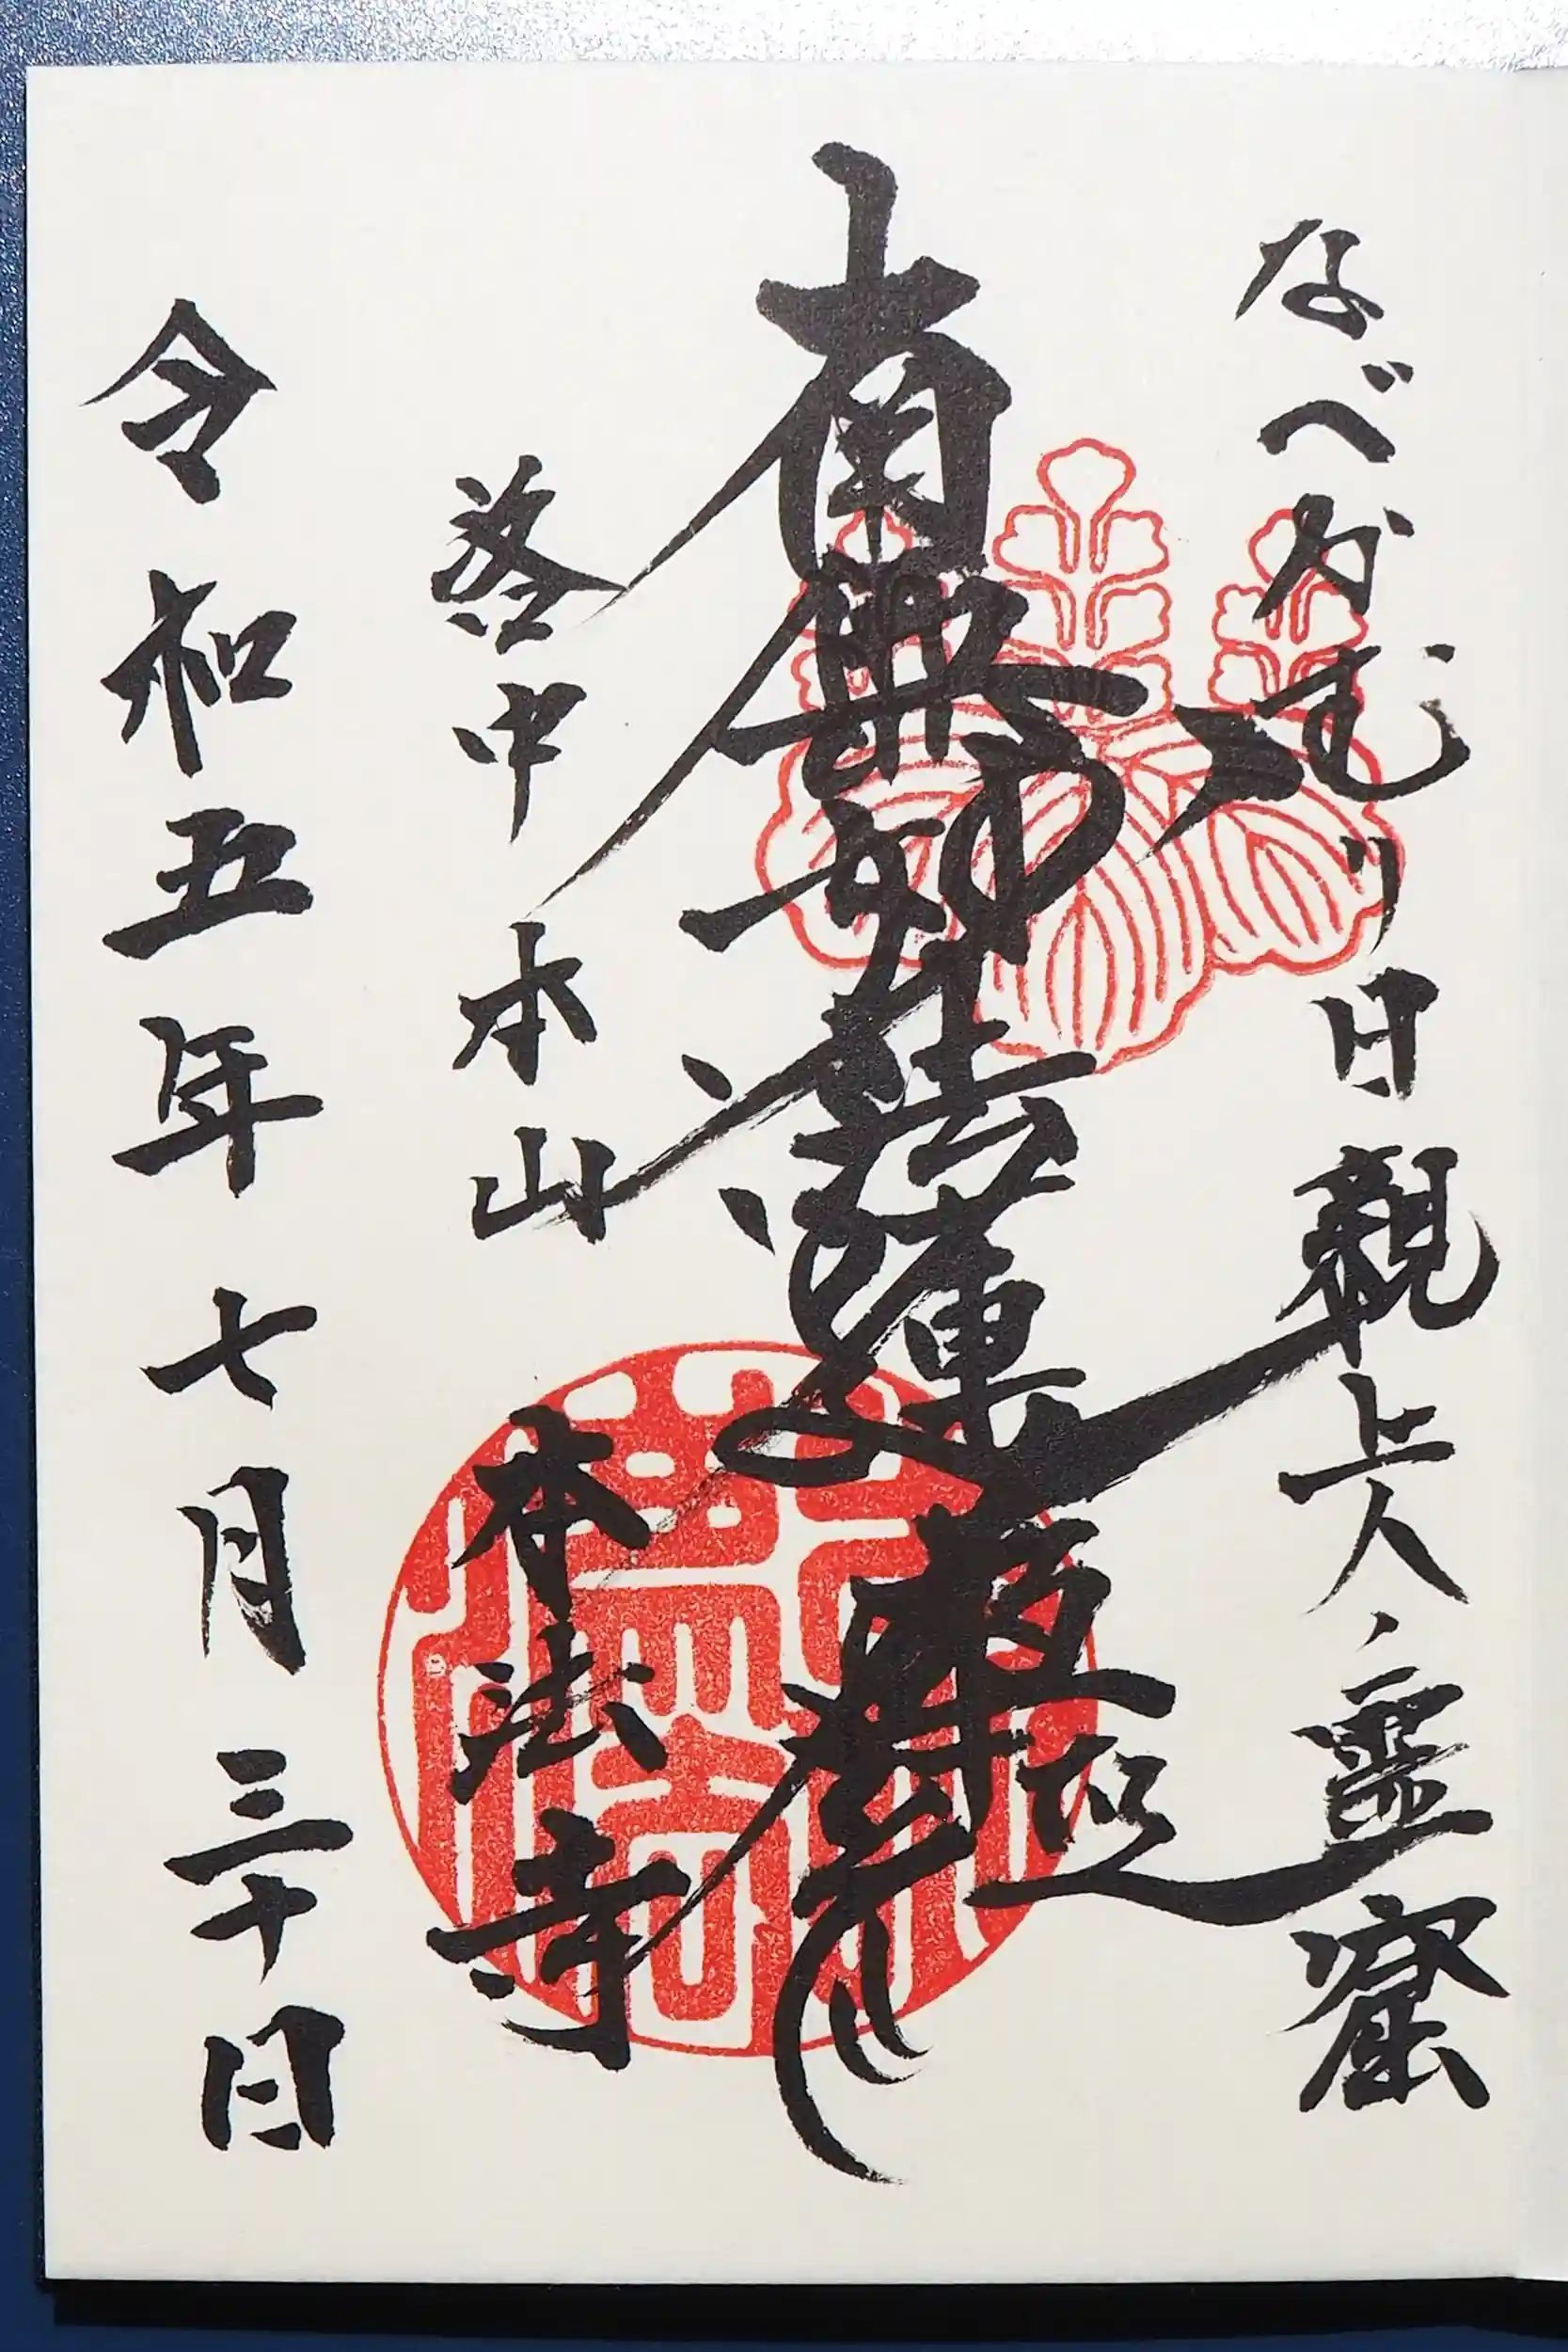 なべかむり日親上人霊窟
南無妙法蓮華経
洛中 本山
本法寺
令和五年七月三十日